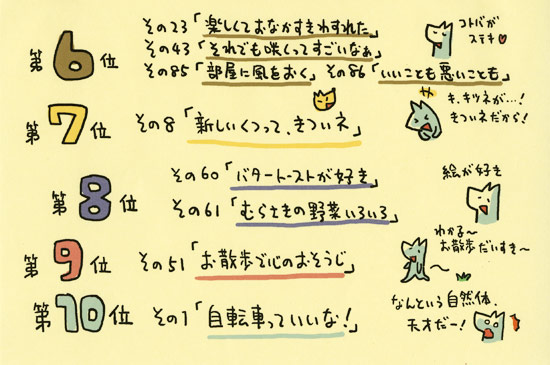 第6位
その23「楽しくておなかすきわすれた」
その43「それでも咲くってすごいなぁ」
その85「部屋に風をおく」 その86「いいことも悪いことも」
コトバが
ステキ♥
第7位
その8「新しいくつって、きついネ」
キ、キツネが…!
きついネだから!
第8位
その60「バタートーストが好き」
その61「むらさきの野菜いろいろ」
絵が好き
第9位
その51「お散歩で心のおそうじ」
わかる〜
お散歩だいすき〜
第10位
その1「自転車っていいな!」
なんという自然体、
天才だー!